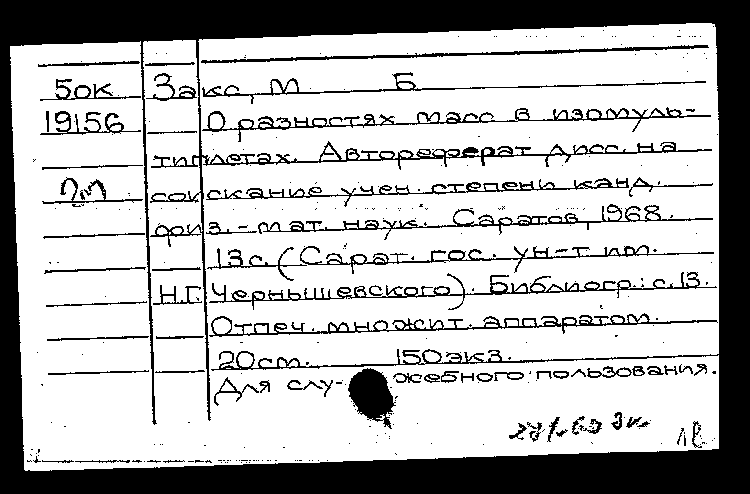 5ок Закс, М Б
19156 О разностях масс в изомуль-
типлетах. Автореферат дисс. на
соискание учен. степени канд.
физ.-мат. наук. Саратов, 1968.
13с. (Сарат. гос. ун-т им.
Н.Г. Чернышевского). Библиогр.: с. 13.
Отпеч. множит. аппаратом.
20см. 150экз.
Для слу-жебного пользования.
18